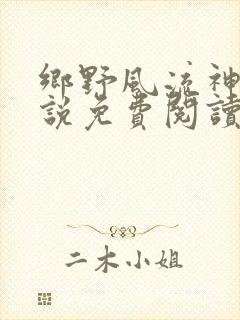 鄉野風流神
說免費閱讀
二木小姐